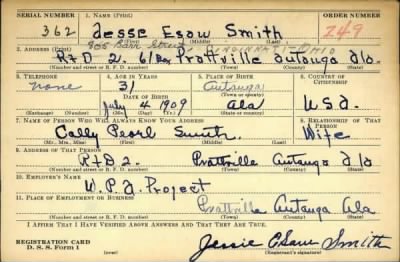 SERIAL NUMBER 1. NAME (Print) ORDER NUMBER
362 Jesse Esaw Smith 249
(First) (Middle) (Last)
805 Barr Street CINCINNATI-OHIO
2. ADDRESS (Print)
R+D 2. Prattville Autauga Ala.
(Number and street or R. F. D. number) (Town) (County) (State)
3. TELEPHONE 4. AGE IN YEARS 5. PLACE OF BIRTH 6. COUNTRY OF CITIZENSHIP
none 31 Autauga
DATE OF BIRTH (Town or county)
July 4 1909 Ala USA.
(Exchange) (No.) (Mo.) (Day) (Yr.) (State or country)
7. NAME OF PERSON WHO WILL ALWAYS KNOW YOUR ADDRESS 8. RELATIONSHIP OF THAT PERSON
Cally Pearl Smith Wife
(Mr., Mrs., Miss) (First) (Middle) (Last)
9. ADDRESS OF THAT PERSON
R+D 2. Prattville Autauga Ala
(Number and street or R. F. D. number) (Town) (County) (State)
10. EMPLOYER'S NAME
W.P.A. Project
11. PLACE OF EMPLOYMENT OR BUSINESS
Prattville Autauga Ala
(Number and street or R. F. D. number) (Town) (County) (State)
I AFFIRM THAT I HAVE VERIFIED ABOVE ANSWERS AND THAT THEY ARE TRUE.
REGISTRATION CARD
D. S. S. Form 1
Jessie Esaw Smith
(Registrant's signature)